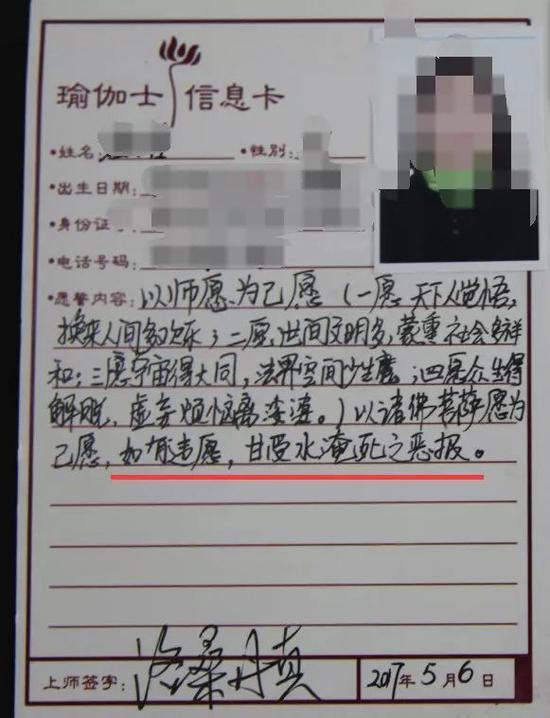 瑜伽士 信息卡
•姓名: •性别:
•出生日期:
•身份证
•电话号码:
•愿誓内容: 以师愿、为己愿（一愿、天下人觉悟,
换来人间多欢乐；二愿、世间文明多,蒙重社会多祥
和；三愿宇宙得大同,法界空间少生魔；四愿众生得
解脱、虚妄烦恼离婆婆。）以诸佛菩萨愿为
己愿,如有违愿,甘受水淹死之恶报。
上师签字: 洛桑丹真 2017年5月6日